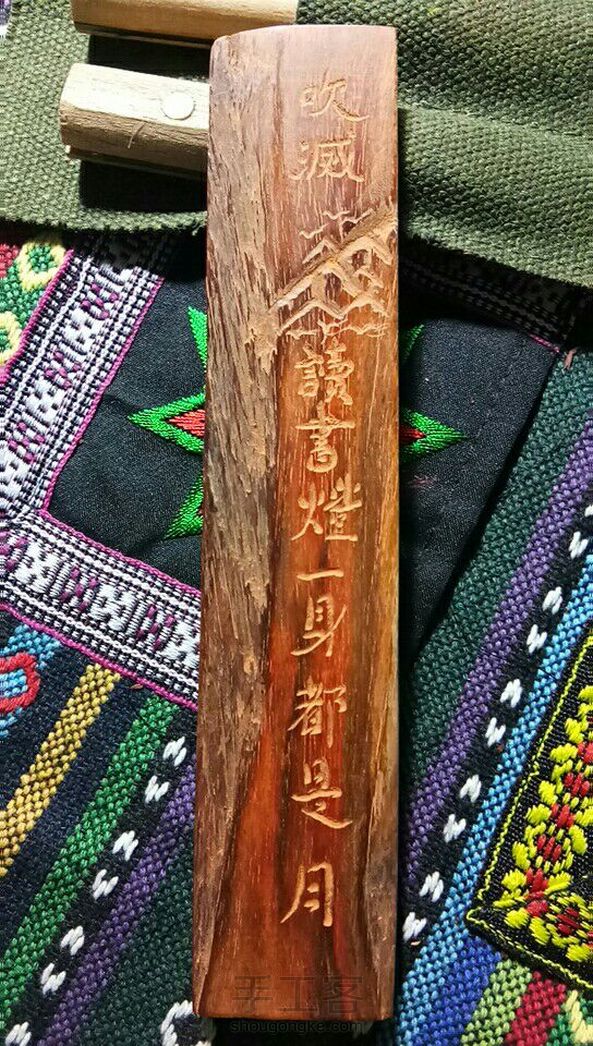 吹滅讀書燈一身都是月
手工客
shougongke.com